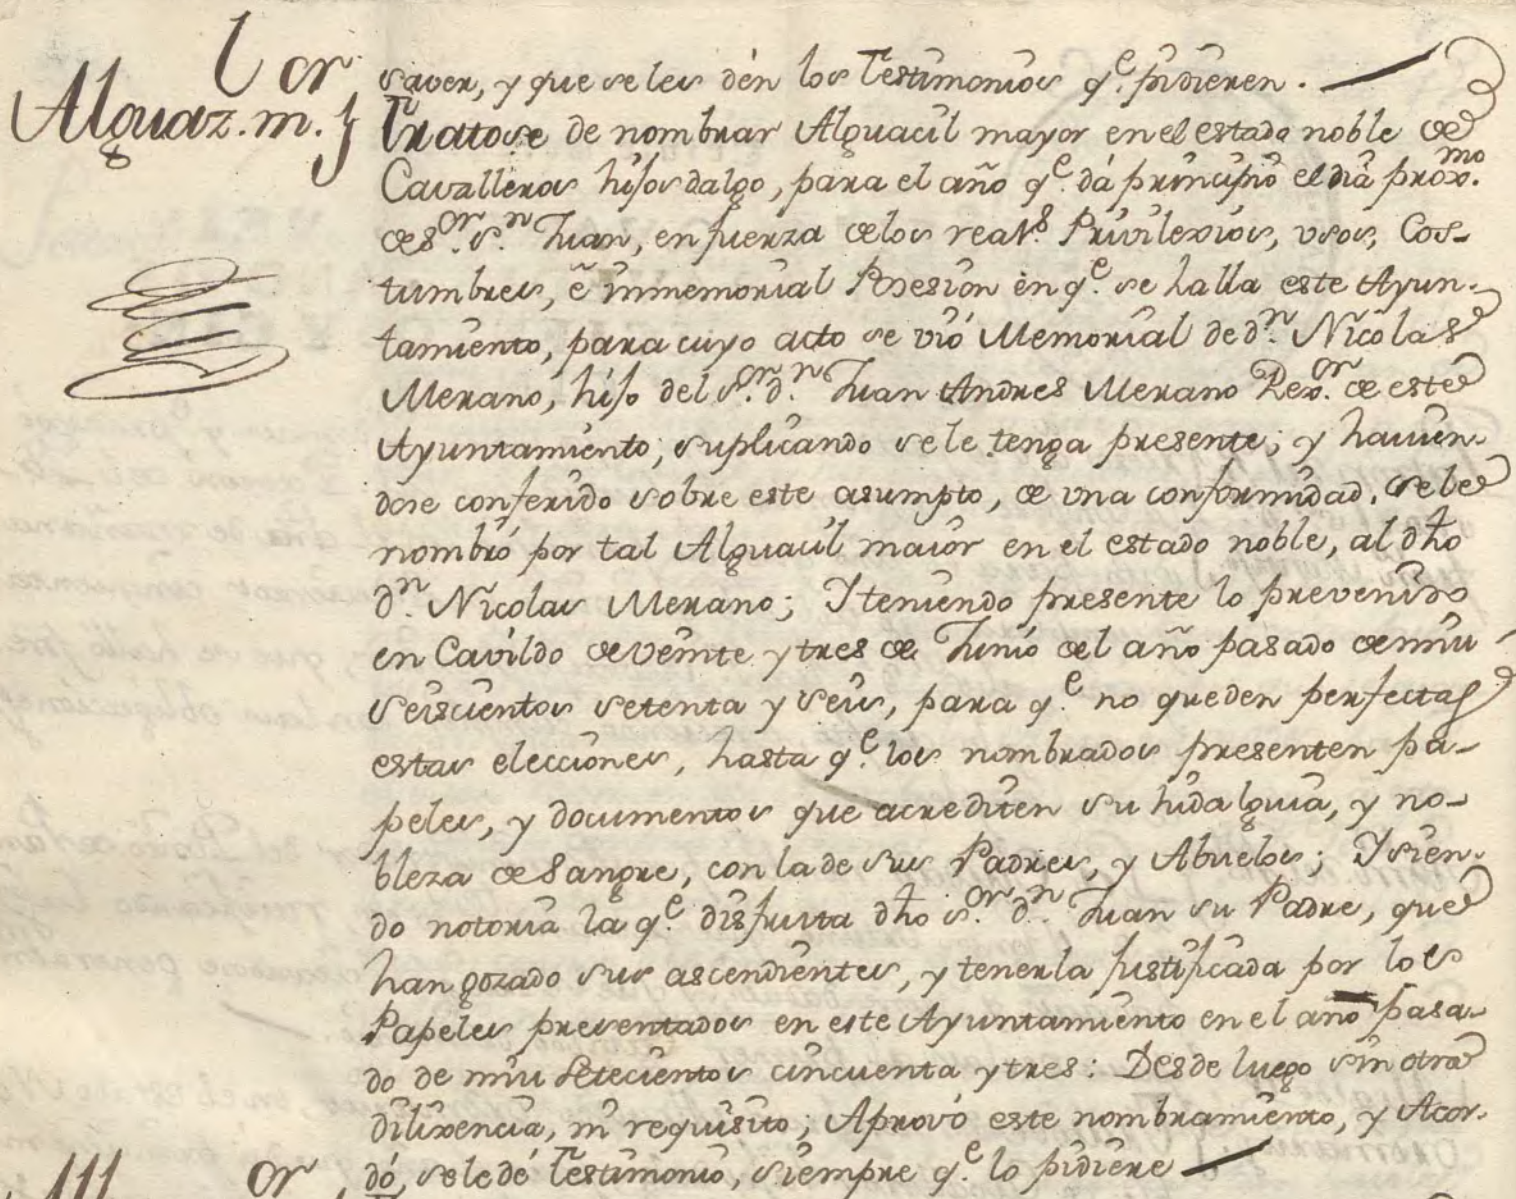 or
Alguaz. m.
saver, y que se les dén los testimonios q.e pidieren.
Tratose de nombrar Alguacil mayor en el estado noble de
Cavalleros hijosdalgo, para el año q.e dá principio el dia prox.mo
de S.or S.n Juan, en fuerza de los real.s Privilexios, vsos, Cos-
tumbres, é inmemorial Posesion en q.e se halla este Ayun-
tamiento, para cuyo acto se vió Memorial de d.n Nicolas
Merano, hijo del s.or d.n Juan Andres Merano Rex.or de este
Ayuntamiento, suplicando se le tenga presente; y havien-
dose conferido sobre este asumpto, de vna conformidad, se le
nombró por tal Alguacil maior en el estado noble, al dho
d.n Nicolas Merano; Y teniendo presente lo prevenido
en Cavildo de veinte y tres de Junio del año pasado de mil
seiscientos setenta y seis, para q.e no queden perfectas
estas elecciones, hasta q.e los nombrados presenten pa-
peles, y documentos que acrediten su hidalguia, y no-
bleza de sangre, con la de sus Padres, y Abuelos; Y sien-
do notoria la q.e disfruta dho s.or d.n Juan su Padre, que
han gozado sus ascendientes, y tenerla justificada por los
Papeles presentados en este Ayuntamiento en el año pasa-
do de mil setecientos cincuenta y tres: Desde luego sin otra
dilixencia, ni requisito; Aprovó este nombramiento, y Acor-
dó, se le dé testimonio, siempre q.e lo pidiere
or